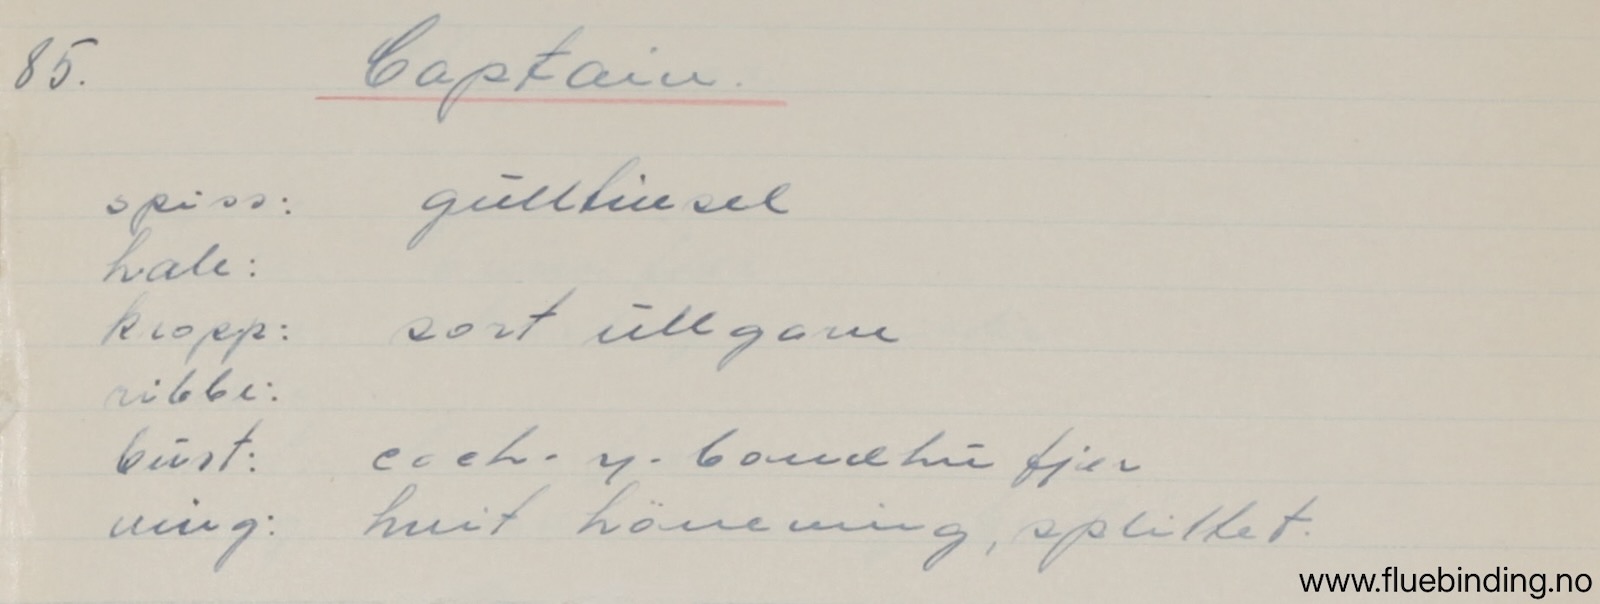 85. Captain.
spiss: gulltinsel
hale:
kropp: sort ullgarn
ribbe:
bust: coch-y-bondhu fjer
ving: hvit höneving, splittet.
www.fluebinding.no